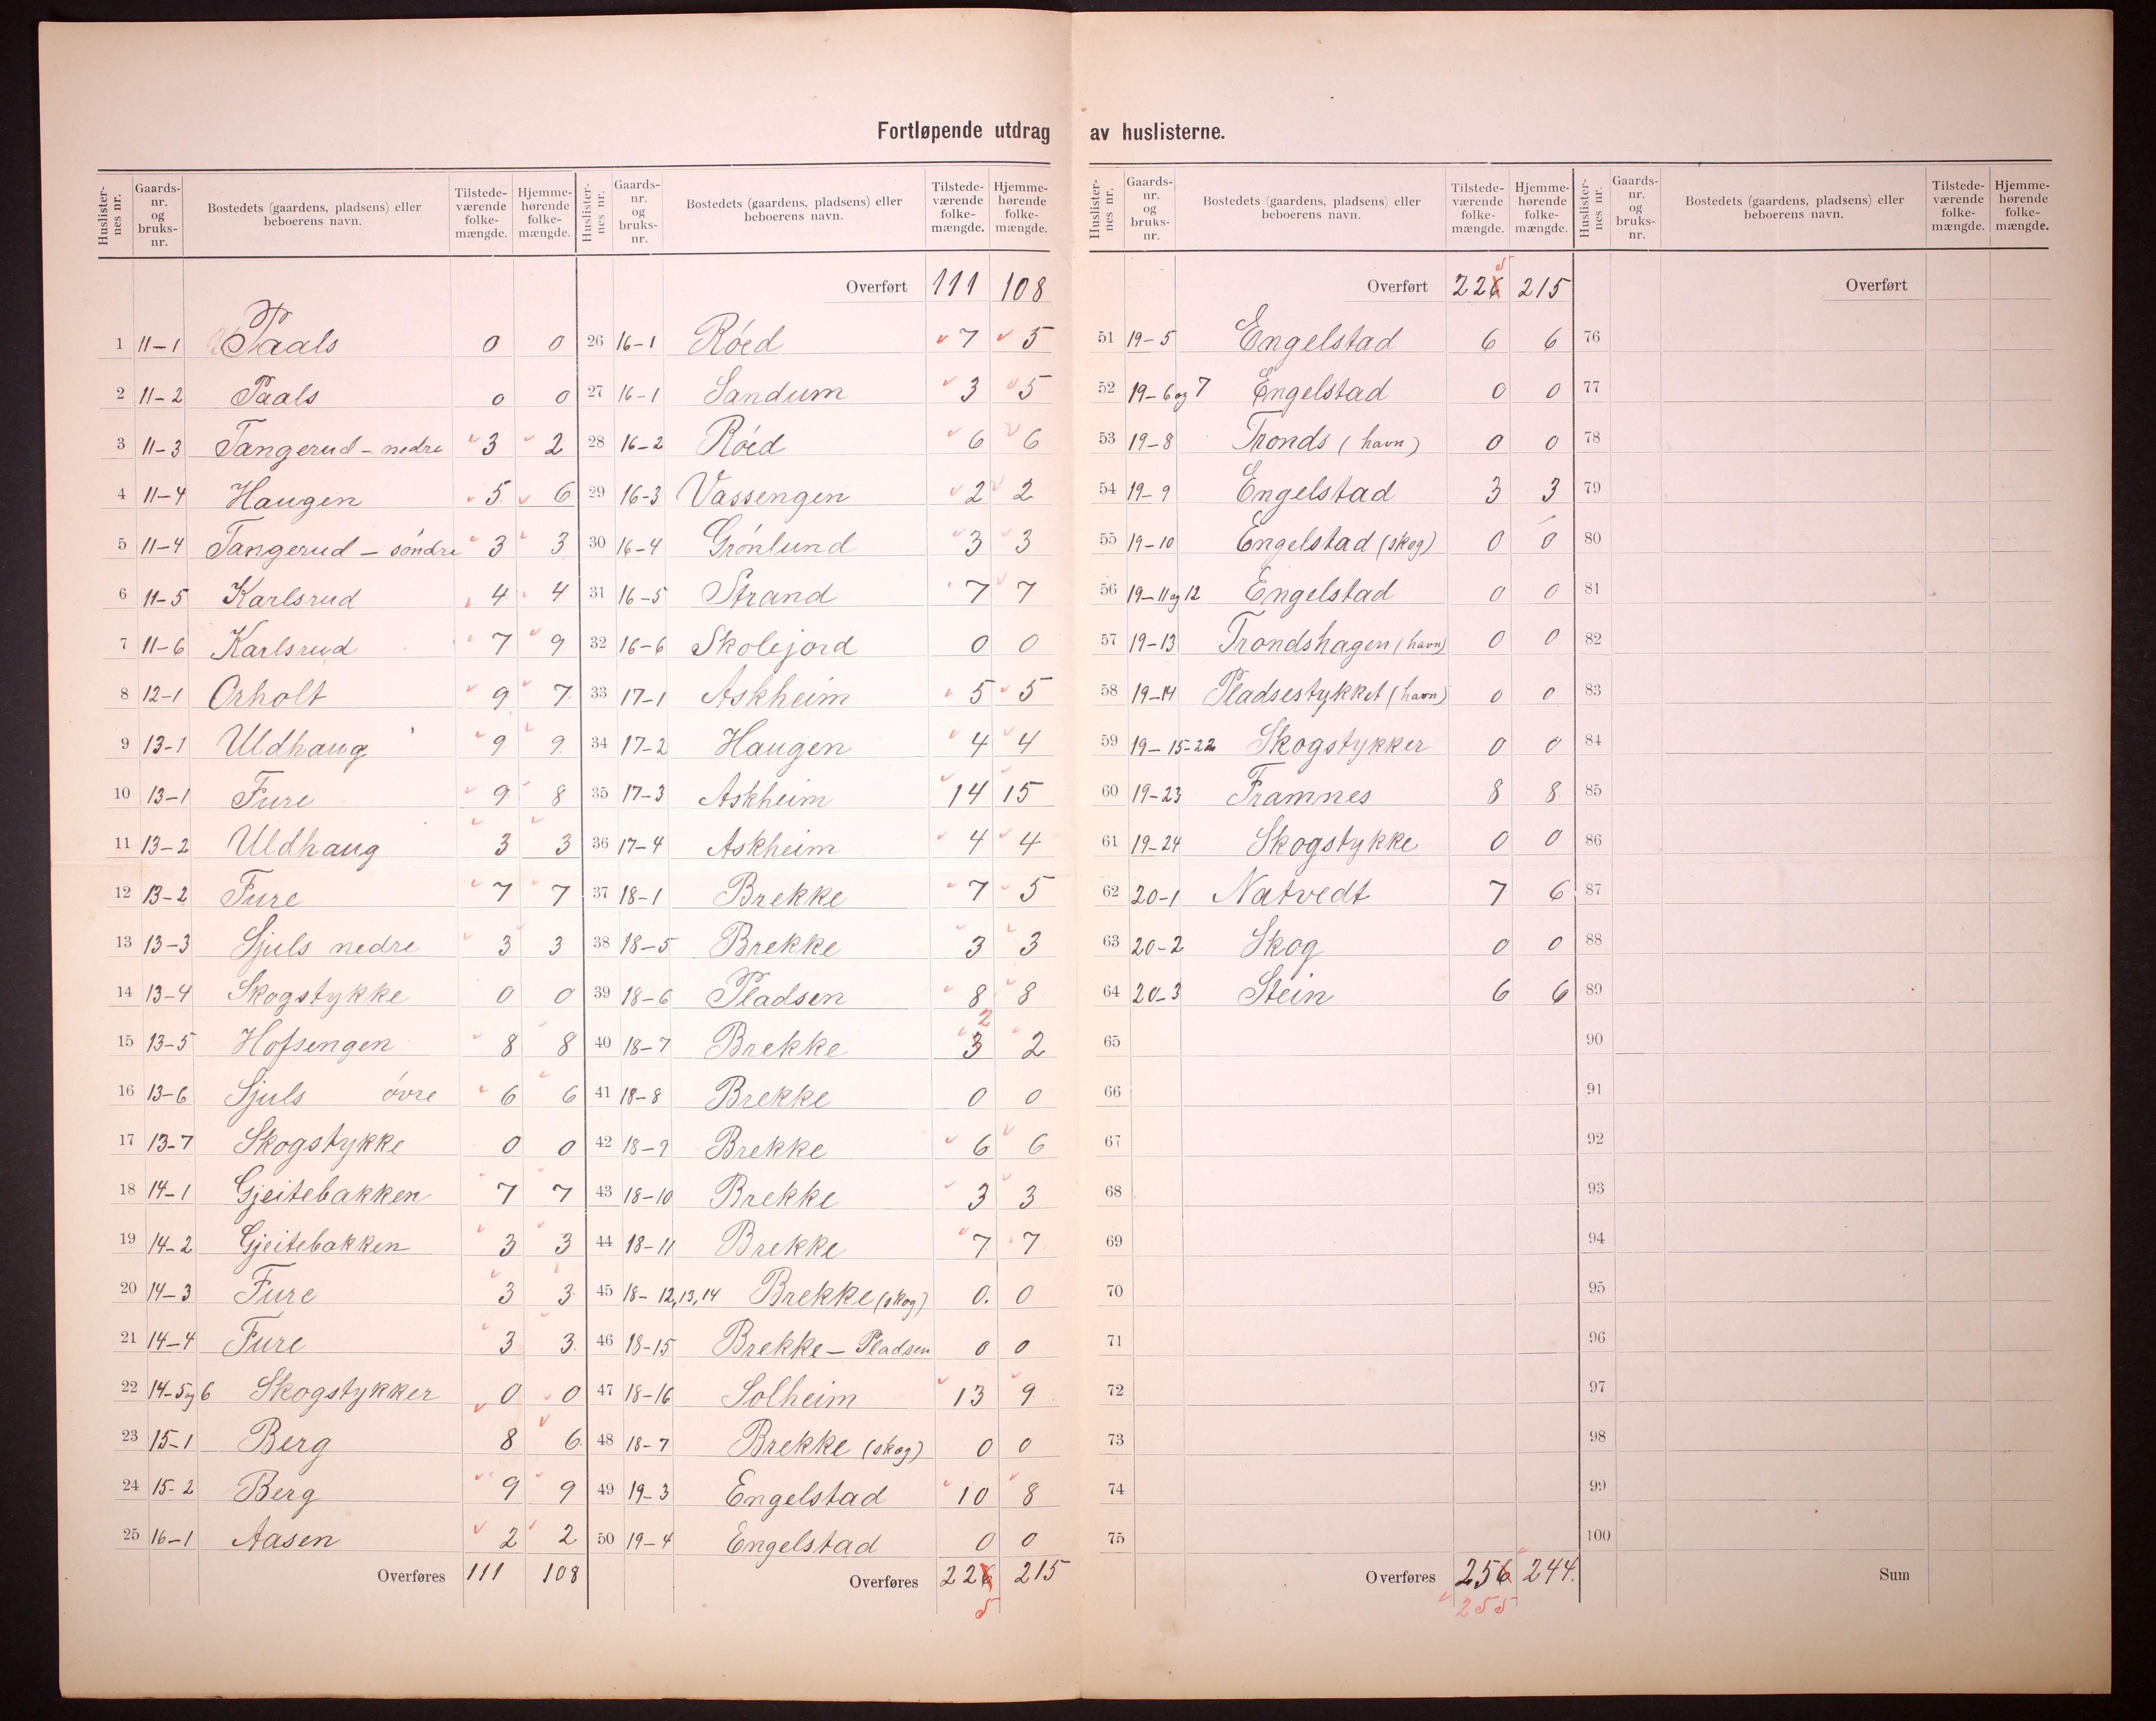 Fortløpende utdrag av huslisterne.
Huslisternes nr. Gaards-nr. og bruks-nr. Bostedets (gaardens, pladsens) eller beboerens navn. Tilstede-værende folke-mængde. Hjemme-hørende folke-mængde.
1 11-1 Paals 0 0
2 11-2 Paals 0 0
3 11-3 Tangerud - nedre 3 2
4 11-4 Haugen 5 6
5 11-4 Tangerud - søndre 3 3
6 11-5 Karlsrud 4 4
7 11-6 Karlsrud 7 9
8 12-1 Orholt 9 7
9 13-1 Uldhaug 9 9
10 13-1 Fure 9 8
11 13-2 Uldhaug 3 3
12 13-2 Fure 7 7
13 13-3 Sjuls nedre 3 3
14 13-4 Skogstykke 0 0
15 13-5 Hofsengen 8 8
16 13-6 Sjuls øvre 6 6
17 13-7 Skogstykke 0 0
18 14-1 Gjeitebakken 7 7
19 14-2 Gjeitebakken 3 3
20 14-3 Fure 3 3
21 14-4 Fure 3 3
22 14-5 og 6 Skogstykker 0 0
23 15-1 Berg 8 6
24 15-2 Berg 9 9
25 16-1 Aasen 2 2
Overføres 111 108
Huslisternes nr. Gaards-nr. og bruks-nr. Bostedets (gaardens, pladsens) eller beboerens navn. Tilstede-værende folke-mængde. Hjemme-hørende folke-mængde.
Overført 111 108
26 16-1 Røed 7 5
27 16-1 Sandum 3 5
28 16-2 Røed 6 6
29 16-3 Vassengen 2 2
30 16-4 Grønlund 3 3
31 16-5 Strand 7 7
32 16-6 Skolejord 0 0
33 17-1 Askheim 5 5
34 17-2 Haugen 4 4
35 17-3 Askheim 14 15
36 17-4 Askheim 4 4
37 18-1 Brekke 7 5
38 18-5 Brekke 3 3
39 18-6 Pladsen 8 8
2
40 18-7 Brekke 3 2
41 18-8 Brekke 0 0
42 18-9 Brekke 6 6
43 18-10 Brekke 3 3
44 18-11 Brekke 7 7
45 18-12,13,14 Brekke (skog) 0. 0
46 18-15 Brekke - Pladsen 0 0
47 18-16 Solheim 13 9
48 18-7 Brekke (skog) 0 0
49 19-3 Engelstad 10 8
50 19-4 Engelstad 0 0
Overføres 226 215
5
Huslisternes nr. Gaards-nr. og bruks-nr. Bostedets (gaardens, pladsens) eller beboerens navn. Tilstede-værende folke-mængde. Hjemme-hørende folke-mængde.
5
Overført 226 215
51 19-5 Engelstad 6 6
52 19-6 og 7 Engelstad 0 0
53 19-8 Tronds (havn) 0 0
54 19-9 Engelstad 3 3
55 19-10 Engelstad (skog) 0 0
56 19-11 og 12 Engelstad 0 0
57 19-13 Trondshagen (havn) 0 0
58 19-14 Pladsestykket (havn) 0 0
59 19-15-22 Skogstykker 0 0
60 19-23 Framnes 8 8
61 19-24 Skogstykke 0 0
62 20-1 Natvedt 7 6
63 20-2 Skog 0 0
64 20-3 Stein 6 6
65
66
67
68
69
70
71
72
73
74
75
Overføres 256 244.
255
Huslisternes nr. Gaards-nr. og bruks-nr. Bostedets (gaardens, pladsens) eller beboerens navn. Tilstede-værende folke-mængde. Hjemme-hørende folke-mængde.
Overført
76
77
78
79
80
81
82
83
84
85
86
87
88
89
90
91
92
93
94
95
96
97
98
99
100
Sum